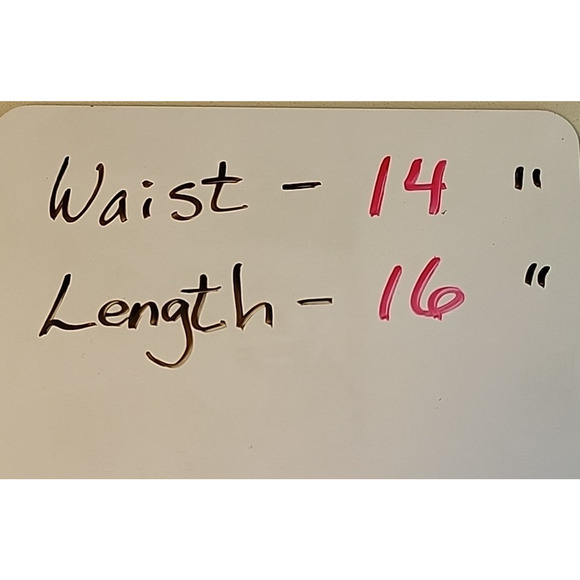 Waist - 14 "
Length - 16 "